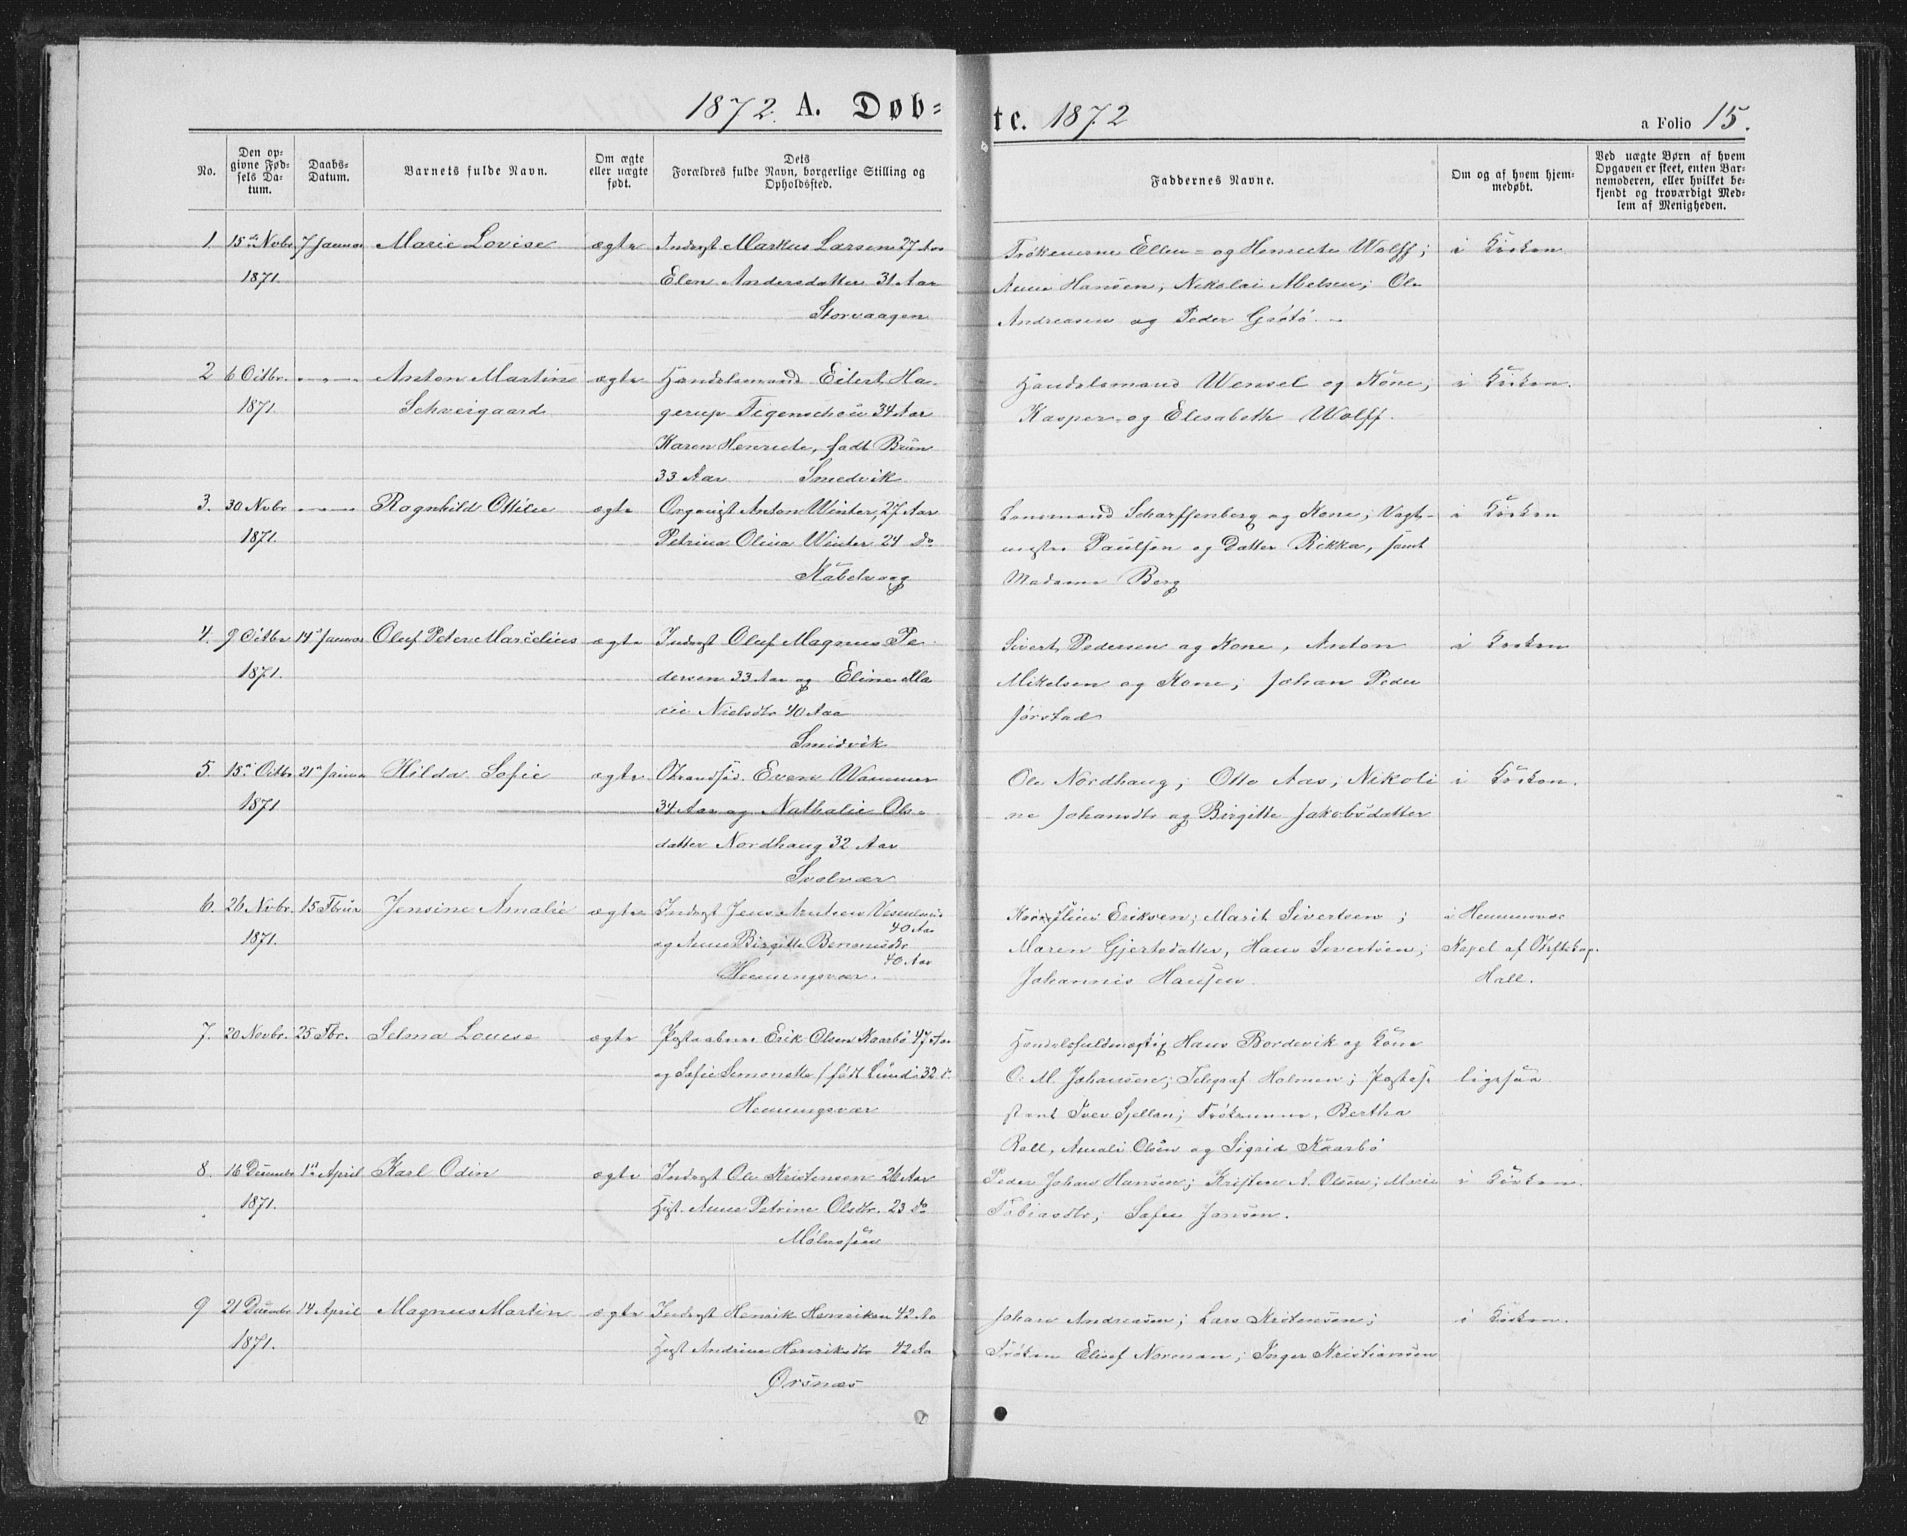 1872. A. Døb=
te. 1872
a Folio 15.
No.
Den op-
givne Fød-
sels Da-
tum.
Daabs-
Datum.
Barnets fulde Navn.
Om ægte
eller uægte
født.
Dets
Forældres fulde Navn, borgerlige Stilling og
Opholdssted.
Faddernes Navne.
Om og af hvem hjem-
medøbt.
Ved uægte Børn af hvem
Opgaven er skeet, enten Bar-
nemoderen, eller hvilket be-
kjendt og troværdigt Med-
lem af Menigheden.
1. 15de Novbr 7 Januar Marie Lovise ægte Inderst Markus Larsen 27 Aar
1871. Elen Andersdatter 31 Aar
Storvaagen
Frøkenerne Ellen= og Henriette Wolff; i Kirken
Anne Hansen; Nikolai Abelsen; Ole
Andreasen og Peder Grøtø.
2 6 Octbr. Anton Martin ægte Handelsmand Eilert Ha-
1871. Schveigaard gerup Figenschou 34 Aar
Karen Henriete, født Brun
33 Aar Smedvik
Handelsmand Wensel og Kone; i Kirken.
Kasper og Elisabeth Wolff.
3. 30 Novbr Ragnhild Ottilie ægte Organist Anton Winter, 27 Aar
1871. Petrina Olina Winter 24 Do
Kabelvaag
Lensmand Scharffenberg og Kone; Vagt- i Kirken
mester Paulsen og Datter Rikka, samt
Madame Berg
4. 9 Octbr 14 Januar Oluf Peter Marcelius ægte Inderst Oluf Magnus Pe-
1871. dersen 33 Aar og Eline Ma
rie Nielsdtr 40 Aar
Smidvik
Sivert Pedersen og Kone, Anton i Kirken
Mikelsen og Kone; Johan Peder
Jørstad
5. 15de Octbr 21 Januar Hilda Sofie ægte Strandsid. Even Wammer
1871 34 Aar og Nathalie Ols-
datter Nordhaug 32 Aar
Svolvær
Ole Nordhaug; Otto Aas; Nikoli i Kirken.
ne Johansdtr og Birgitte Jakobsdatter
6. 26 Novbr. 15 Fbruar Jensine Amalie ægte Inderst Jens Andreas
1871. 40 Aar
og Anne Birgitte
40 Aar
Henningsvær.
Eriksen; Marit Sivertsen; i
Maren Gjertsdatter, Hans Sivertsen; Kapel af
Johannes Hansen. Hall.
7. 20 Novbr. 25 Fbr. Selma Lovise ægte Postaabner Erik Olsen Kaarbø 47 Aar
og Sofie Simonette (født Lund) 32 d.
Henningsvær
Handelsfuldmægtig Hans Bordevik og Kone
O. M. Johansen; Telegraf Holmen; ligesaa
Bertha
Rall, Amali Olsen og Sigrid Kaarbø
8. 16 Decembr 1st April Karl Odin ægte Inderst Ole Kristensen 26 Aar
1871. Hust. Anne Petrine Olsdtr. 23 do
Peder Johan Hansen; Kristen A. Olsen; Marie i Kirken.
Tobiasdtr; Sofie Jansen.
9 21 Decembr 14 April Magnus Martin ægte Inderst Henrik Henriksen 42 Aa
1871. Hust Andrine Henriksdtr 42 Aa
Ørsnæs
Johan Andreasen; Lars Kristensen; i Kirken.
Frøken Elisef Norman; Inger Kristiansen